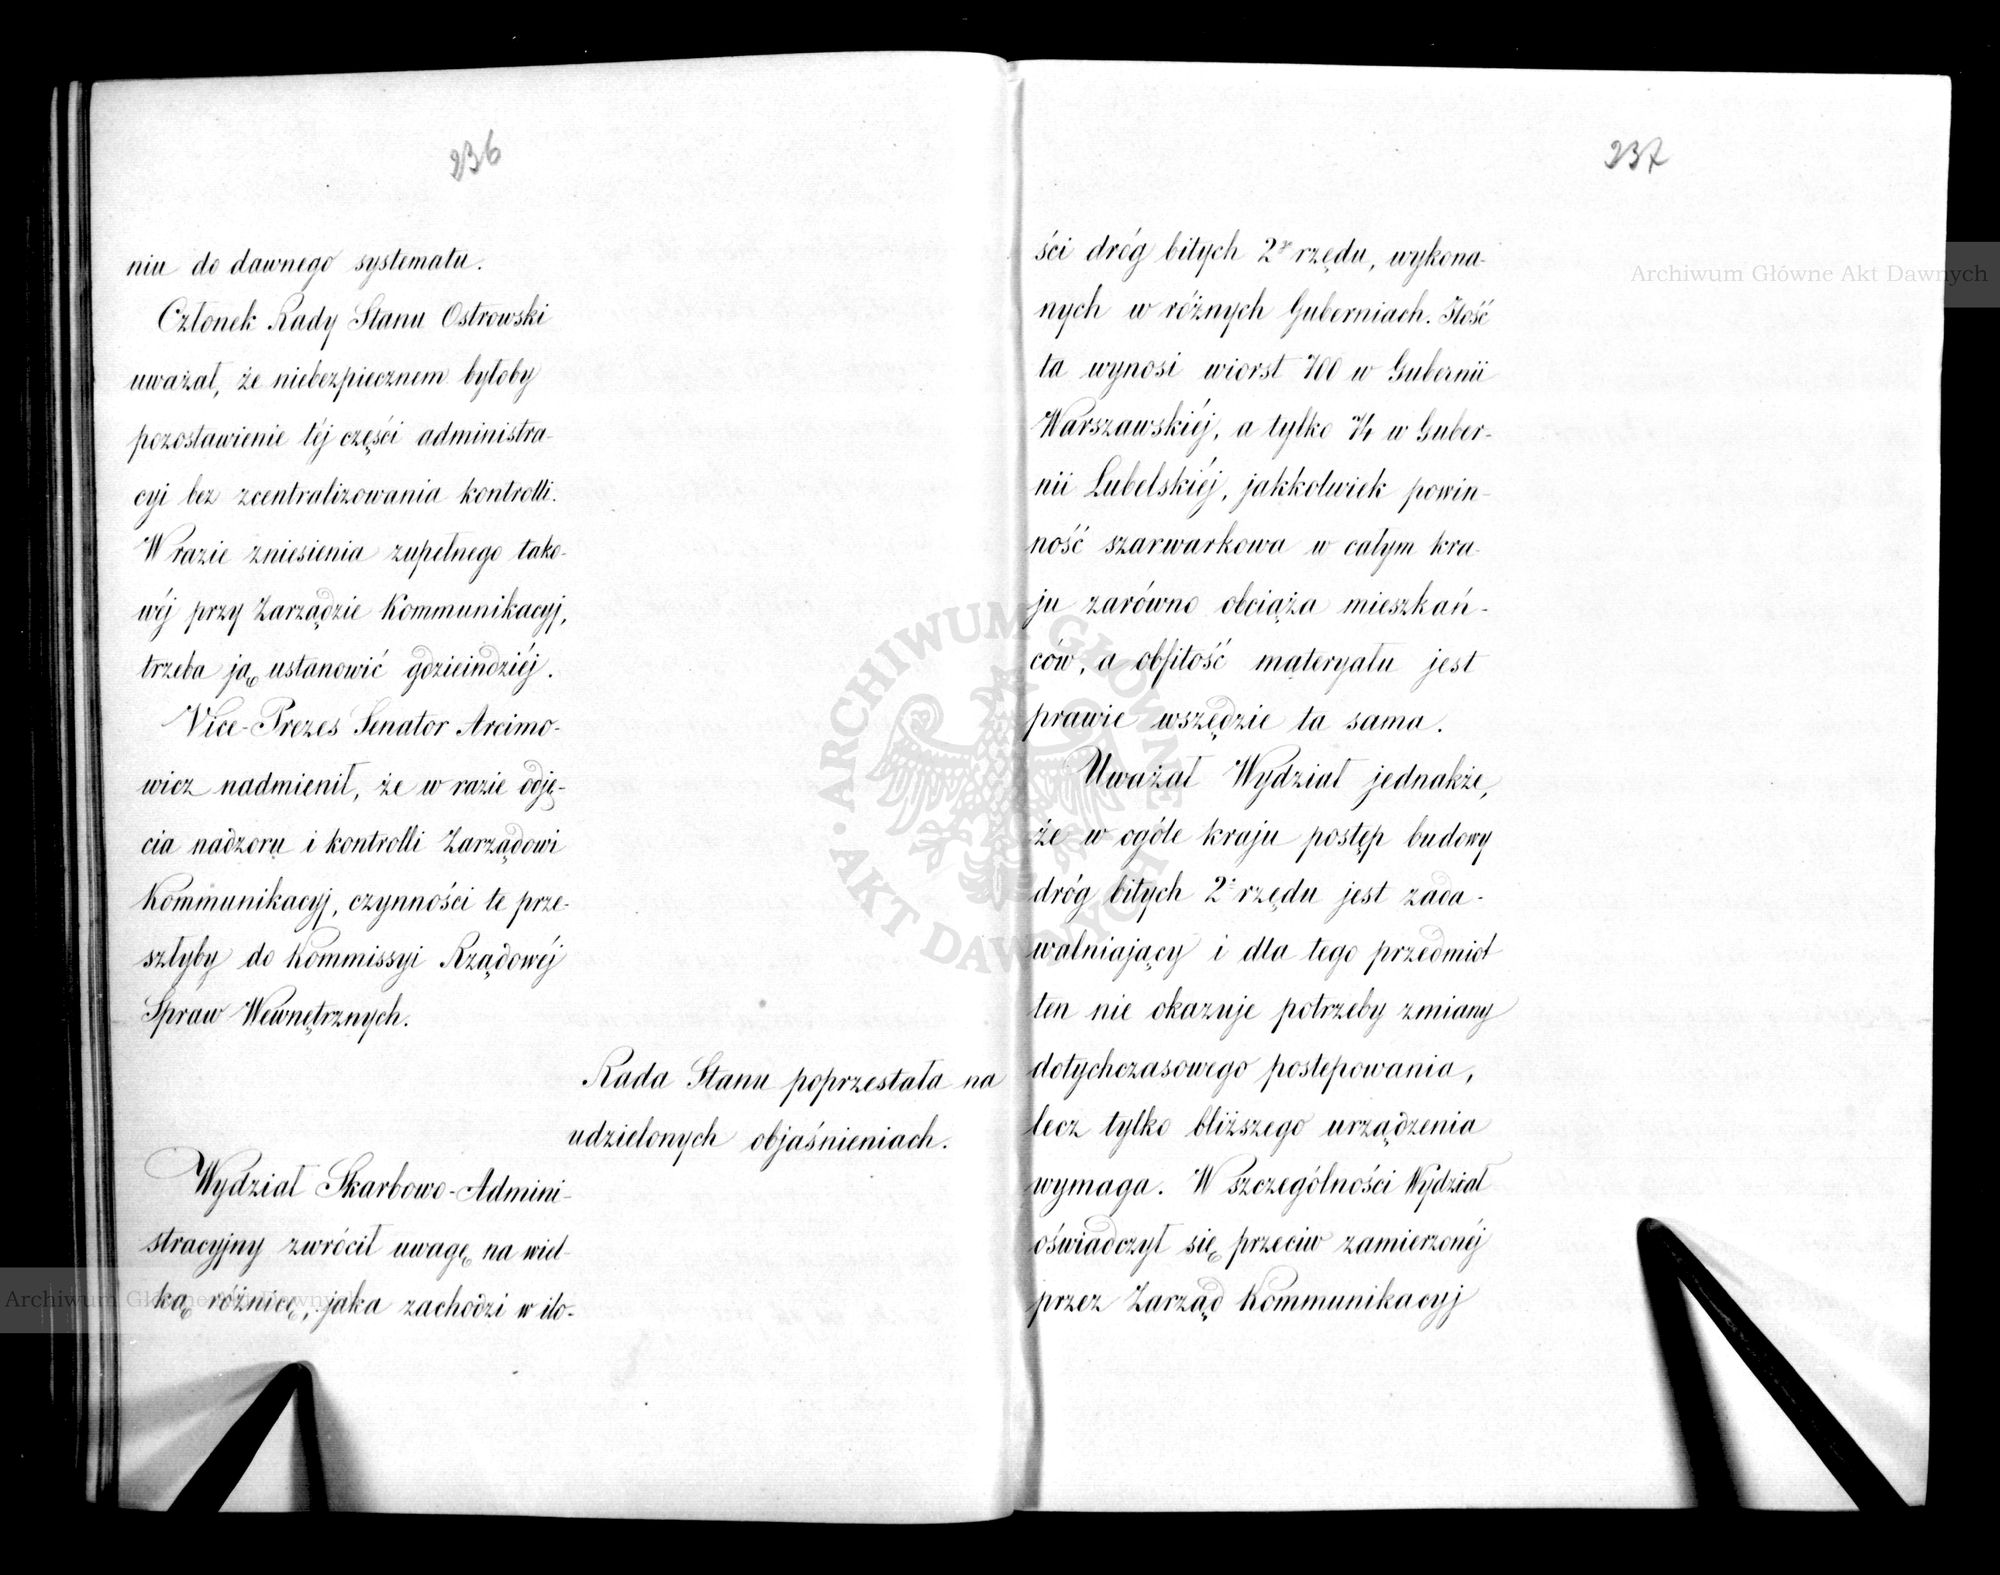 236
niu do dawnego systematu.
Członek Rady Stanu Ostrowski
uważał, że niebezpiecznem byłoby
pozostawienie téj części administra-
cyi bez zcentralizowania kontrolli.
W razie zniesienia zupełnego tako-
wéj przy Zarządzie Kommunikacyj,
trzeba ją ustanowić gdzieindziéj.
Vice-Prezes Senator Arcimo-
wicz nadmienił, że w razie odję-
cia nadzoru i kontrolli Zarządowi
Kommunikacyj, czynności te prze-
szłyby do Kommissyi Rządowéj
Spraw Wewnętrznych.
Rada Stanu poprzestała na
udzielonych objaśnieniach.
Wydział Skarbowo-Admini-
stracyjny zwrócił uwagę na wiel-
ką różnicę, jaka zachodzi w ilo-
237
ści dróg bitych 2º rzędu, wykona-
nych w różnych Guberniach. Ilość
ta wynosi wiorst 700 w Gubernii
Warszawskiéj, a tylko 74 w Guber-
nii Lubelskiéj, jakkolwiek powin-
ność szarwarkowa w całym kra-
ju zarówno obciąża mieszkań-
ców, a obfitość materyału jest
prawie wszędzie ta sama.
Uważał Wydział jednakże,
że w ogóle kraju postęp budowy
dróg bitych 2º rzędu jest zada-
walniający i dla tego przedmiot
ten nie okazuje potrzeby zmiany
dotychczasowego postępowania,
lecz tylko bliższego urządzenia
wymaga. W szczególności Wydział
oświadczył się przeciw zamierzonéj
przez Zarząd Kommunikacyj
Archiwum Główne Akt Dawnych
Archiwum Główne Akt Dawnych
ARCHIWUM GŁÓWNE AKT DAWNYCH